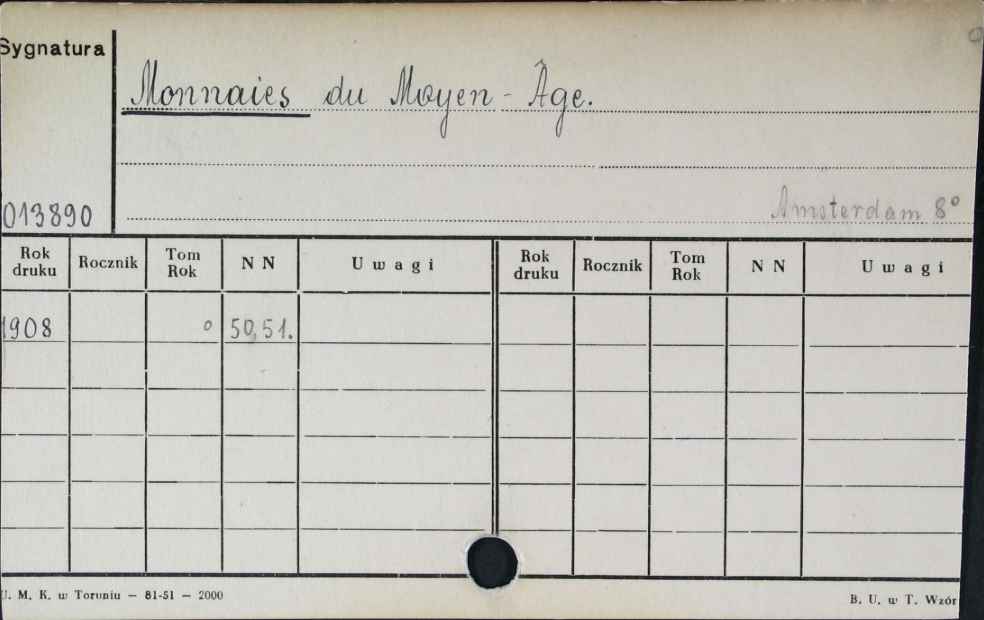 Sygnatura
Monnaies du Moyen-Âge.
013890
Amsterdam 8°
Rok druku Rocznik Tom Rok NN Uwagi Rok druku Rocznik Tom Rok NN Uwagi
1908 o 50,51.
U. M. K. w Toruniu — 81-51 — 2000
B. U. w T. Wzór